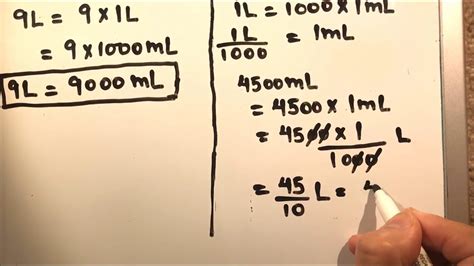 9L = 9 × 1L
= 9 × 1000mL
9L = 9000mL
1L = 1000 × 1mL
1L/1000 = 1mL
4500mL
= 4500 × 1mL
= 4500 × 1/1000 L
= 45/10 L = 4